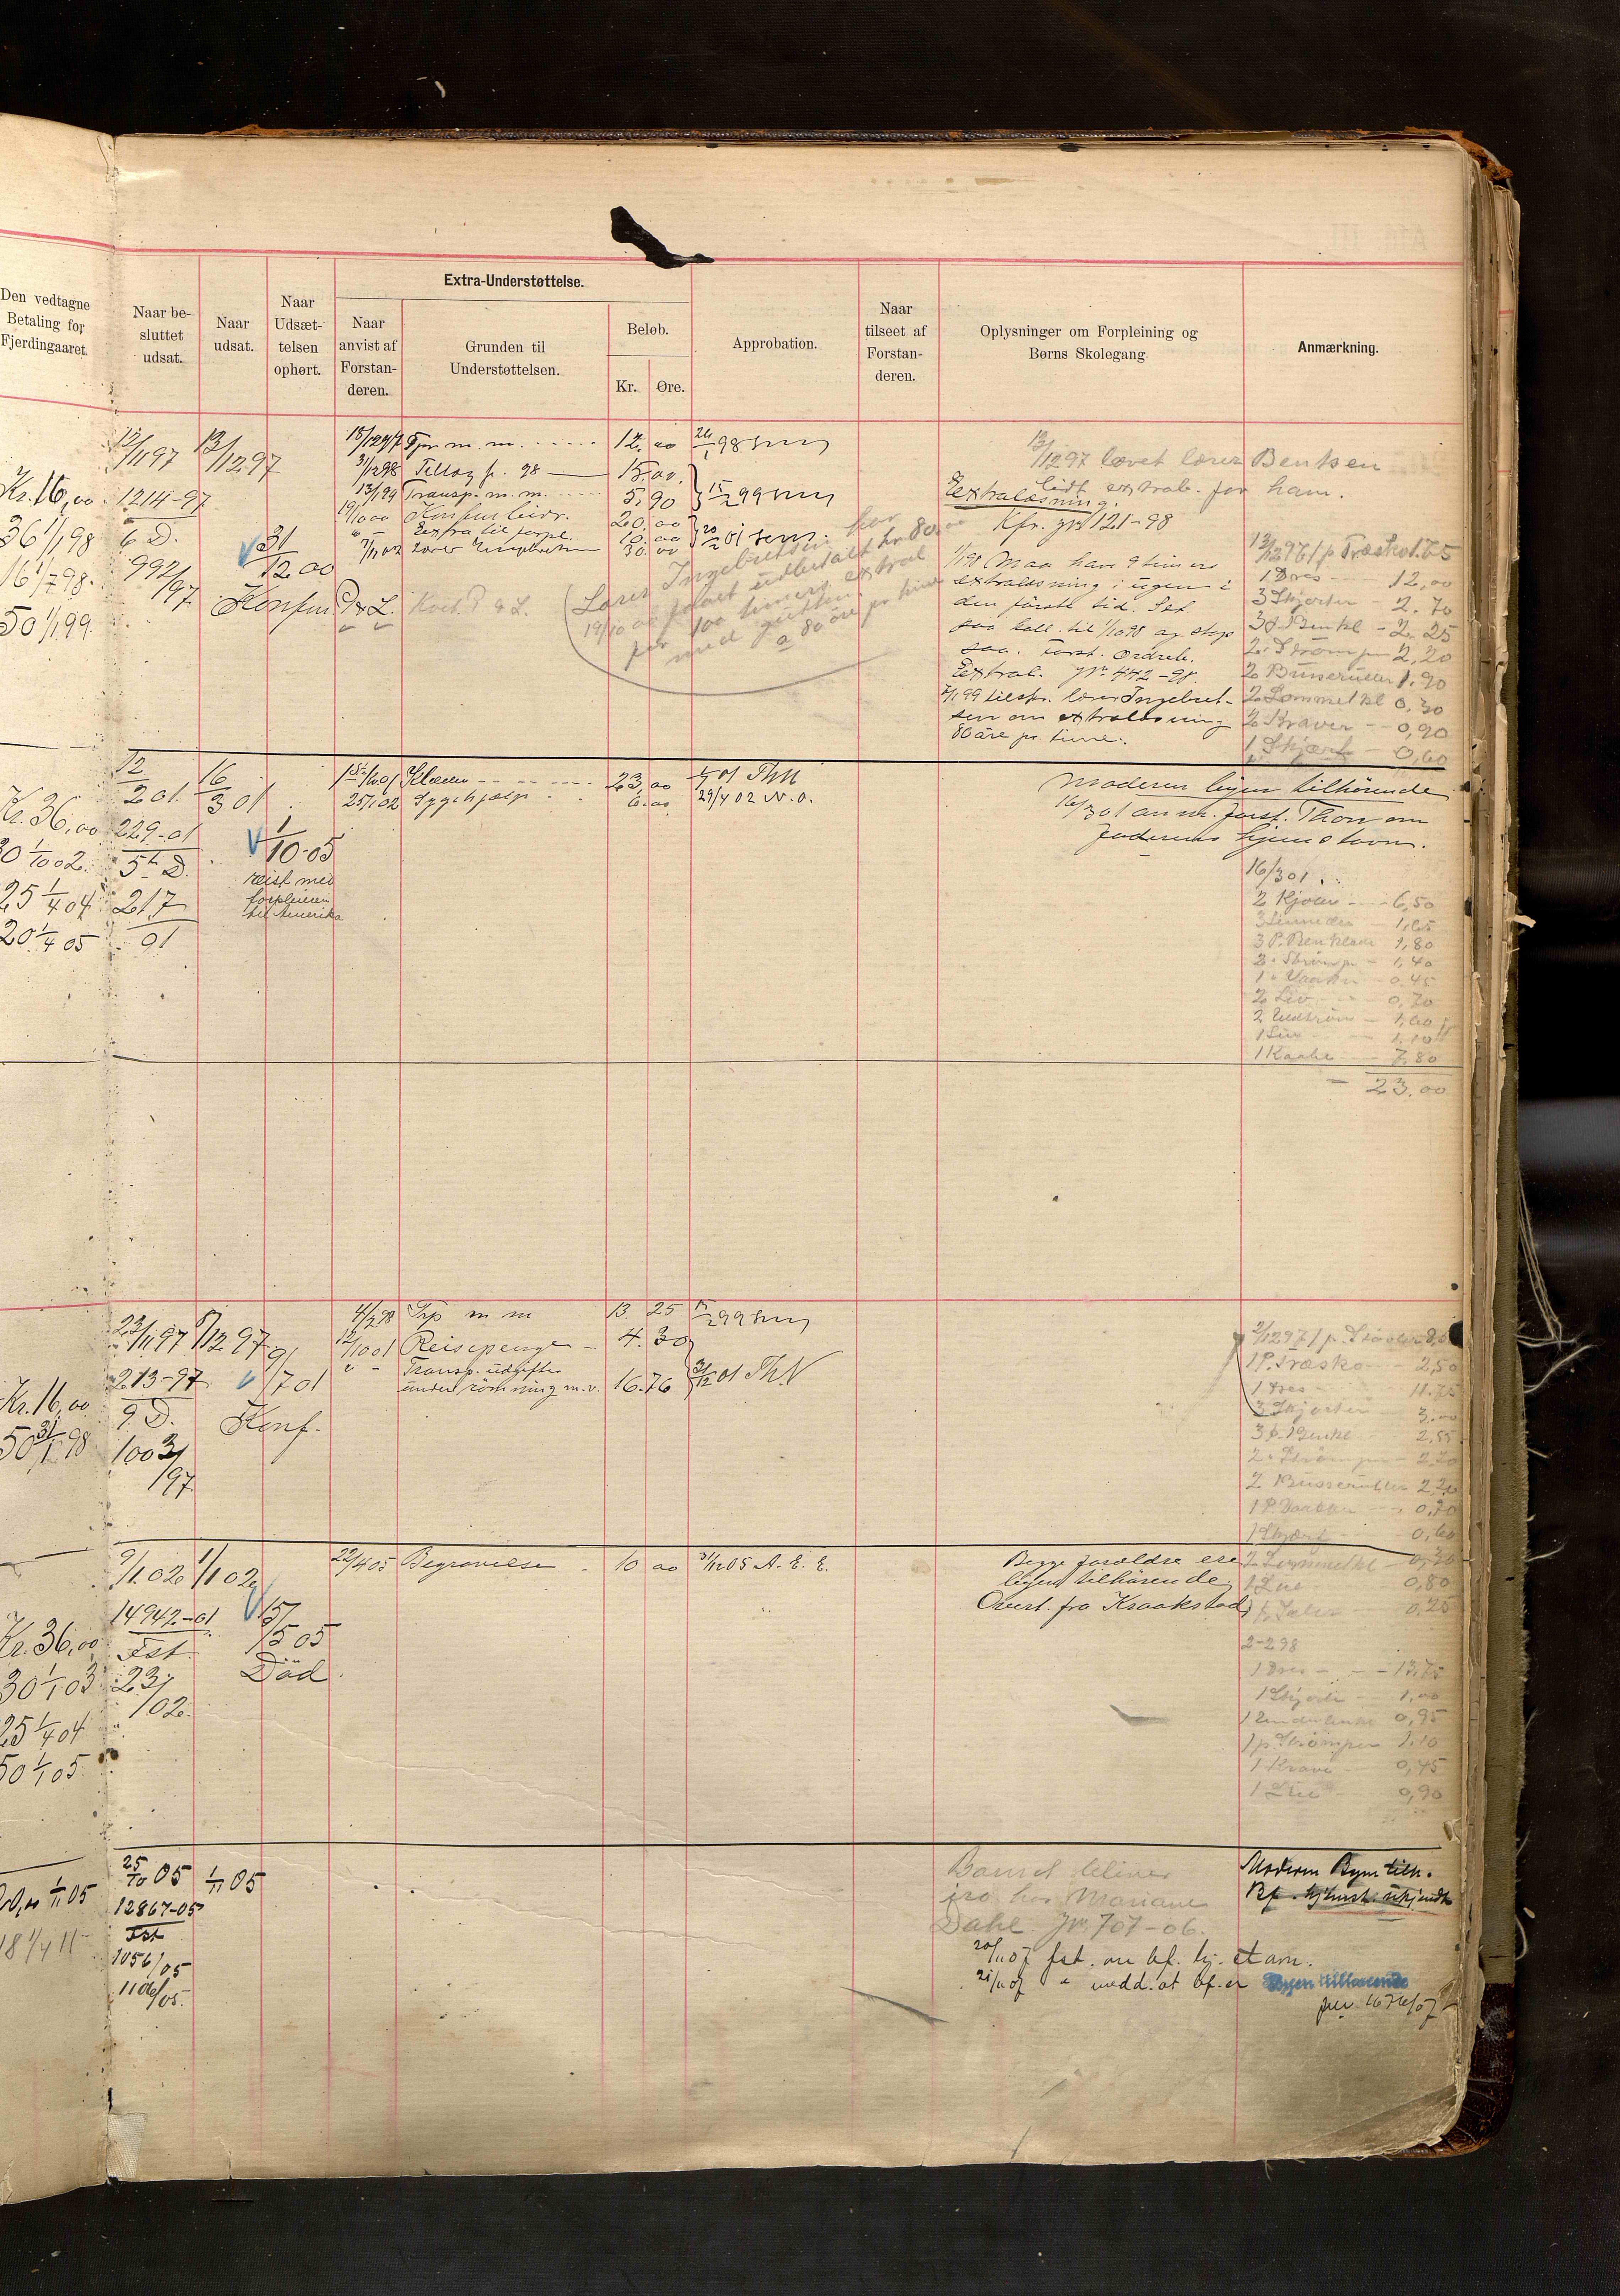 Den vedtagne
Betaling for
Fjerdingaaret.
Naar be-
sluttet
udsat.
Naar
udsat.
Naar
Udsæt-
telsen
ophørt.
Extra-Understøttelse.
Naar
anvist af
Forstan-
deren.
Grunden til
Understøttelsen.
Beløb.
Kr.
Øre.
Approbation.
Naar
tilseet af
Forstan-
deren.
Oplysninger om Forpleining og
Børns Skolegang
Anmærkning.
Kr. 16,00
36 1/1 98
16 1/7 98.
50 1/1 99.
12/11 97
1214-97
6 D.
992/97
13/12 97
31/12 00
Konfirm. P & L.
18/12 97 Tpr m. m. 12. 00
31/12 98 Tillæg f. 98 15. 00.
13/1 99 Transp. m. m. 5. 90
19/10 00 Konfirm bidr. 20. 00
" - Extra til forpl. 10. 00
lærer Ingebretsen 30. 00
26/1 98
15/2 99
20/2 01
Lærer Ingebretsen har
19/10 00 faaet udbetalt kr. 80.00
for 100 timers extral
med gutten
a 80 øre pr time
13/12 97 lovet lærer Bentsen
lidt extrab. for ham.
Extralæsning.
Kfr. jr 121-98
1/1 98 Maa have 9 timers
extralæsning i ugen i
den første tid. Set
saa hall. til 1/10 98 og stop
saa. Forst. Ordreb.
Extral. Jr. 442-98.
tilskr. lærer Ingebret-
sen om extralæsning
80 øre pr. time.
13/12 97 1 p. Træsko 1.75
1 Dres - 12,00
3 Skjorter 2.70
3 p. Benkl - 2. 25
2 " Strømper 2,20
2 Busseruller 1.90
2 Lommetkl 0,30
2 Kraver - 0,90
1 Skjærf - 0,60
Kr. 36,00
30 1/10 02.
25 1/4 04
20 1/4 05
12/2 01.
229-01
5te D.
217/01
16/3 01
1/10-05
reist med
forpleieren
til Amerika
Klæder 23,00
25/1 02 Sygehjælp 6.00
1/7 01 ThN
29/4 02 N. O.
Moderen byen tilhørende
16/3 01 anm. forst. Thon om
faderens hjemstavn.
16/3 01.
2 Kjoler - 6,50
3 Linneder - 1,65
3 P. Benklæder 1,80
2 " Strømper - 1,40
1 " Vanter - 0,45
2 Liv - 0,70
2 Uldtrøier - 1,60
1 Lue - 1,10
1 Kaabe - 7,80
- 23,00
Kr. 16,00
50 31/1 98
23/11 97
213-97
9. D.
1003/97
8/12 97
9/7 01
Konf.
4/2 98 Trp m m 13. 25
12/10 01 Reisepenge - 4. 30
" - Transp. udgifter
under rømning m.v. 16.76
15/2 99
31/12 01 Th.N
1 p. Støvler 8,0
1 P. Træsko 2,50
1 Dres - 11.75
3 Skjorter 3,00
3 p. Benkl 2,85
2 " Strømper - 2,20
2 Busseruller 2,20
1 P Vanter - 0,70
1 Skjærf - 0,60
2 Lommetkl - 0,30
1 Lue 0,80
1 p. Seler 0,25
2-2 98
1 Dres - 13,75
1 Skjorte - 1,00
1 Underbenkl 0,95
1 p. Strømper 1.10
1 Krave - 0,45
1 Lue - 0,90
Kr. 36,00
30 1/1 03
25 1/4 04
50 1/1 05
9/1 02
14942-01
Fst.
23/02.
1/1 02
15/5 05
Död.
22/4 05 Begravelse 10 00
31/12 05 A. E. E.
Begge forældre ere
byen tilhørende.
Overt. fra Kraakstad
1/11 05
18 1/4 11
25/10 05
12867-05
Fst
1056/05
1106/05.
1/11 05
Barnet bliver
jr. 707-06.
hos Mariane
Dahl
20/11 07 fst. om bf. hj. stavn.
21/11 07 " medd. at bf. er Byen tilhørende
jnr. 1676/07
Moderen Byen tilh.
Bf. hjemst. ukjendt